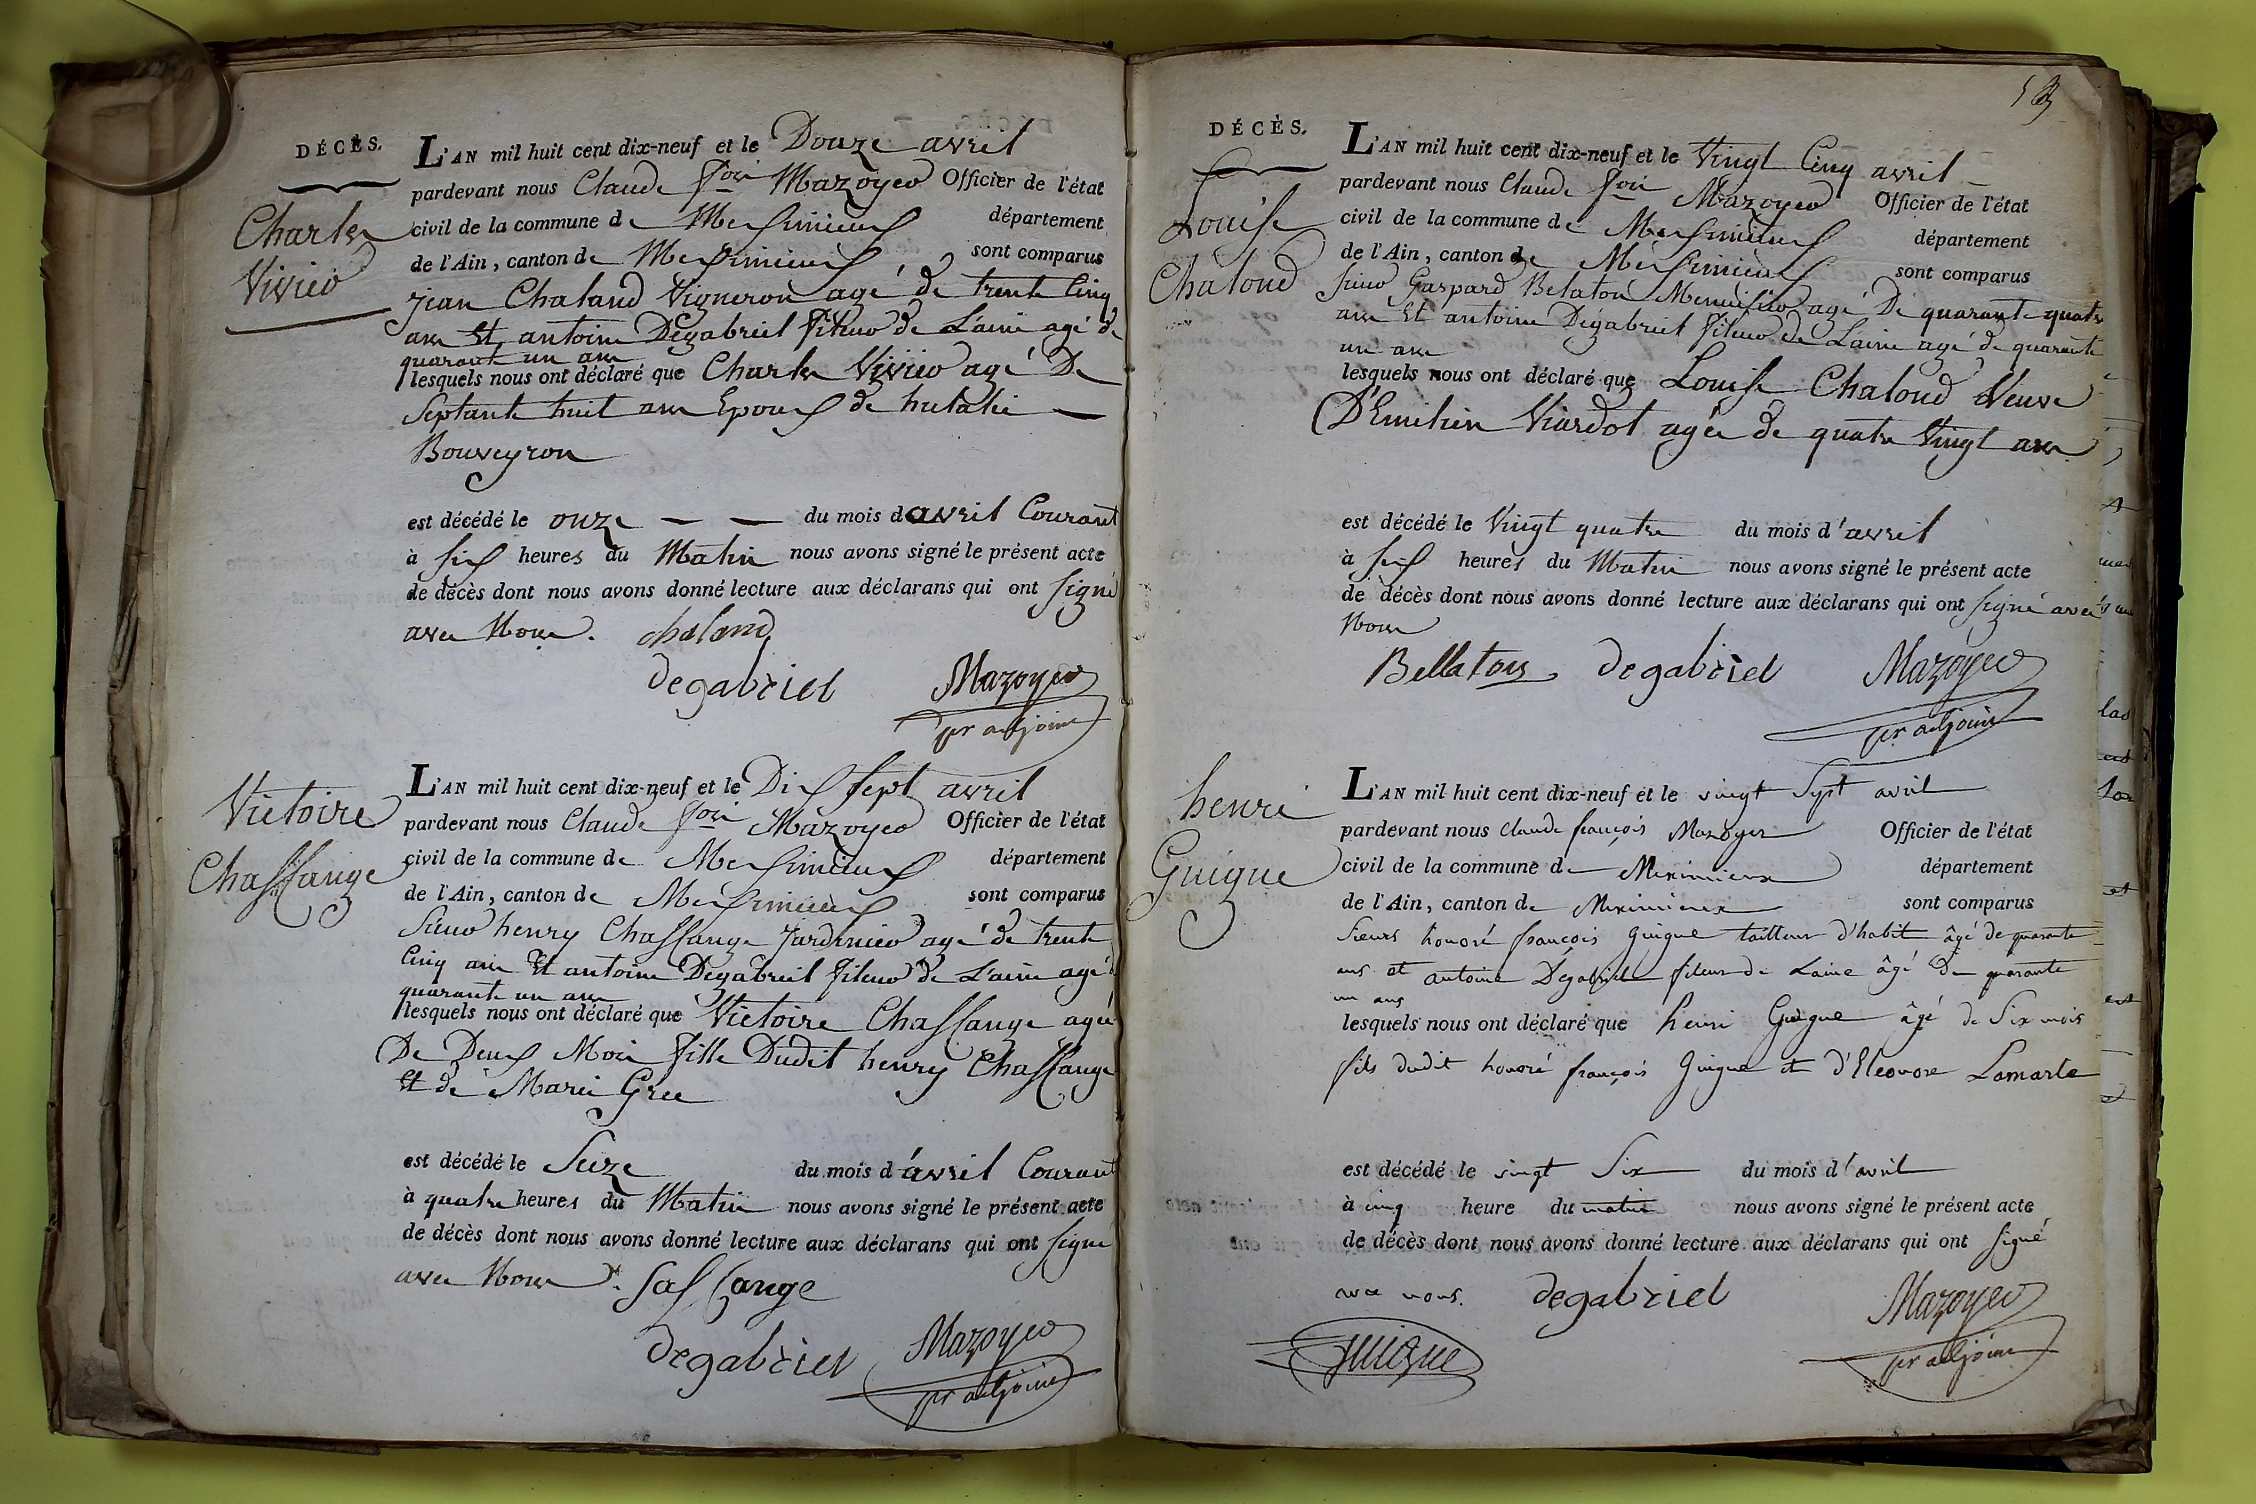 DÉCÈS.
Charles
Vivier
L'AN mil huit cent dix-neuf et le Douze avril
pardevant nous Claude fois Mazoyer Officier de l'état
civil de la commune de Meximieux département
de l'Ain, canton de Meximieux sont comparus
jean Chaland Vigneron agé de trente Cinq
ans Et antoine Degabriel fileur de Laine agé de
quarante un ans
lesquels nous ont déclaré que Charles Vivier agé De
Septante huit ans Epoux de
Bouveyron
est décédé le onze du mois d'avril Courant
à six heures du Matin nous avons signé le présent acte
de décès dont nous avons donné lecture aux déclarans qui ont signé
avec Nous. chaland
degabriel Mazoyer
pr adjoint
Victoire
Chassange
L'AN mil huit cent dix-neuf et le Dix sept avril
pardevant nous Claude fois Mazoyer Officier de l'état
civil de la commune de Meximieux département
de l'Ain, canton de Meximieux sont comparus
Sieur henry Chassange Jardinier agé de trente
Cinq ans Et antoine Degabriel fileur de Laine agé
quarante un ans
lesquels nous ont déclaré que Victoire Chassange agée
De Deux Mois fille Dudit henry Chassange
Et de Marie Gree
est décédé le Seize du mois d'avril Courant
à quatre heures du Matin nous avons signé le présent acte
de décès dont nous avons donné lecture aux déclarans qui ont signé
avec Nous. Sassange
degabriel Mazoyer
pr adjoint
DÉCÈS.
Louise
Chalond
L'AN mil huit cent dix-neuf et le Vingt Cinq avril
pardevant nous Claude fois Mazoyer Officier de l'état
civil de la commune de Meximieux département
de l'Ain, canton de Meximieux sont comparus
sieur Gaspard Belaton Menuisier agé De quarante quatre
ans Et antoine Dégabriel fileur de Laine agé de quarante
un ans
lesquels nous ont déclaré que Louise Chalond Veuve
D'Emilien Viardot agée de quatre Vingt ans
est décédé le Vingt quatre du mois d'avril
à six heures du Matin nous avons signé le présent acte
de décès dont nous avons donné lecture aux déclarans qui ont signé avec
Nous
Bellaton degabriel Mazoyer
pr adjoint
henri
Guigue
L'AN mil huit cent dix-neuf et le vingt Sept avril
pardevant nous Claude françois Mazoyer Officier de l'état
civil de la commune de Meximieux département
de l'Ain, canton de Meximieux sont comparus
Sieurs honoré françois Guigue tailleur d'habit âgé de quarante
ans et antoine Degabriel fileur de Laine âgé de quarante
un ans
lesquels nous ont déclaré que henri Guigue âgé de Six mois
fils dudit honoré françois Guigue et d'Eleonore Lamarle
est décédé le vingt Six du mois d'avril
à cinq heure du matin nous avons signé le présent acte
de décès dont nous avons donné lecture aux déclarans qui ont signé
avec nous. degabriel Mazoyer
guigue pr adjoint